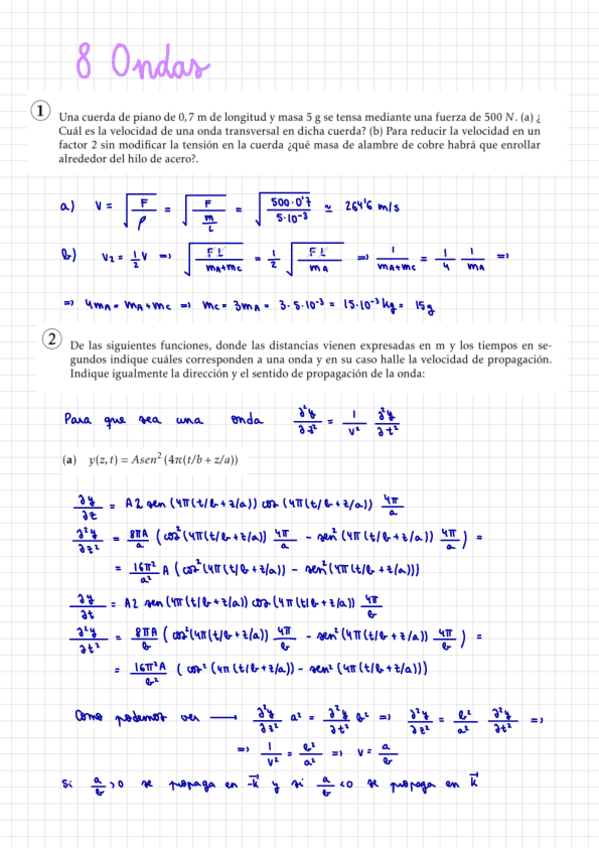 8 Ondas
1 Una cuerda de piano de 0,7 m de longitud y masa 5 g se tensa mediante una fuerza de 500 N. (a) ¿
Cuál es la velocidad de una onda transversal en dicha cuerda? (b) Para reducir la velocidad en un
factor 2 sin modificar la tensión en la cuerda ¿qué masa de alambre de cobre habrá que enrollar
alrededor del hilo de acero?.
a) V = √(F/ρ) = √(F/(m/L)) = √(500·0'7/5·10⁻³) ≃ 264'6 m/s
b) V₂ = 1/2 V => √(FL/(mA+mc)) = 1/2 √(FL/mA) => 1/(mA+mc) = 1/4 1/mA =>
=> 4mA = mA + mc => mc = 3mA = 3·5·10⁻³ = 15·10⁻³ kg = 15g
2 De las siguientes funciones, donde las distancias vienen expresadas en m y los tiempos en se-
gundos indique cuáles corresponden a una onda y en su caso halle la velocidad de propagación.
Indique igualmente la dirección y el sentido de propagación de la onda:
Para que sea una onda ∂²y/∂z² = 1/v² ∂²y/∂t²
(a) y(z,t) = Asen² (4π(t/b + z/a))
∂y/∂z = A2 sen (4π(t/b+z/a)) cos (4π(t/b+z/a)) 4π/a
∂²y/∂z² = 8πA/a (cos²(4π(t/b+z/a)) 4π/a - sen²(4π(t/b+z/a)) 4π/a) =
= 16π²/a² A (cos²(4π(t/b+z/a)) - sen²(4π(t/b+z/a)))
∂y/∂t = A2 sen (4π(t/b+z/a)) cos (4π(t/b+z/a)) 4π/b
∂²y/∂t² = 8πA/b (cos²(4π(t/b+z/a)) 4π/b - sen²(4π(t/b+z/a)) 4π/b) =
= 16π²A/b² (cos²(4π(t/b+z/a)) - sen²(4π(t/b+z/a)))
Como podemos ver ⟶ ∂²y/∂z² a² = ∂²y/∂t² b² => ∂²y/∂z² = b²/a² ∂²y/∂t² =>
=> 1/v² = b²/a² => v = a/b
Si a/b >0 se propaga en -k⃗ y si a/b <0 se propaga en k⃗